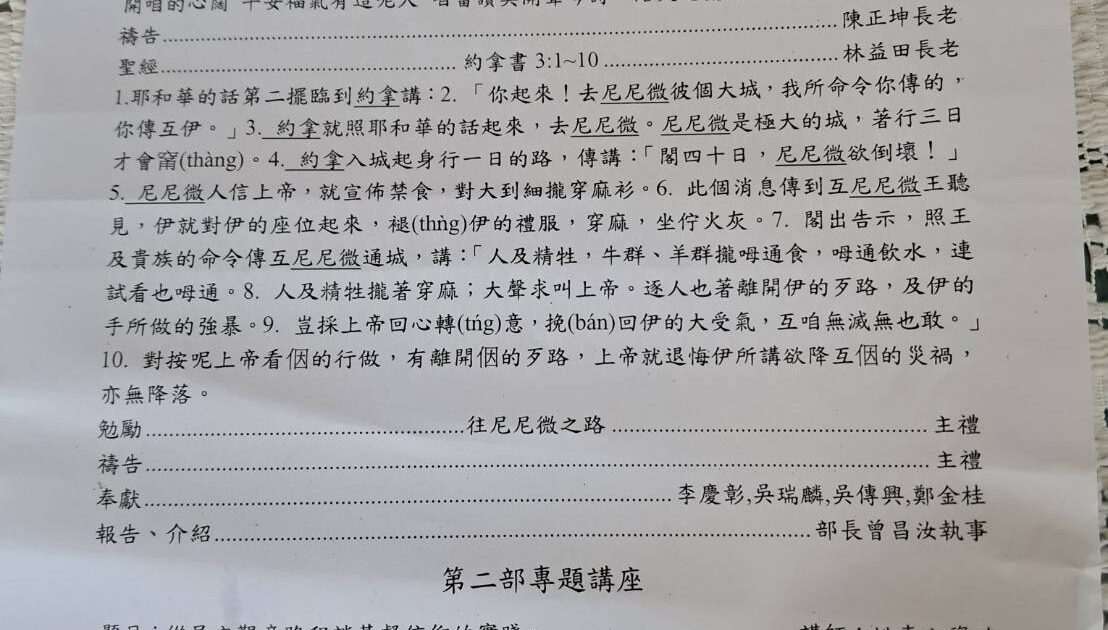 禱告......陳正坤長老
聖經......約拿書 3:1~10......林益田長老
1.耶和華的話第二擺臨到約拿講：2. 「你起來！去尼尼微彼個大城，我所命令你傳的，
你傳互伊。」3. 約拿就照耶和華的話起來，去尼尼微。尼尼微是極大的城，著行三日
才會(thàng)。4. 約拿入城起身行一日的路，傳講：「閣四十日，尼尼微欲倒壞！」
5. 尼尼微人信上帝，就宣佈禁食，對大到細攏穿麻衫。6. 此個消息傳到互尼尼微王聽
見，伊就對伊的座位起來，褪(thǹg)伊的禮服，穿麻，坐佇火灰。7. 閣出告示，照王
及貴族的命令傳互尼尼微通城，講：「人及精牲，牛群、羊群攏呣通食，呣通飲水，連
試看也呣通。8. 人及精牲攏著穿麻；大聲求叫上帝。逐人也著離開伊的歹路，及伊的
手所做的強暴。9. 豈採上帝回心轉(tńg)意，挽(bán)回伊的大受氣，互咱無滅無也敢。」
10. 對按呢上帝看𪜶的行做，有離開𪜶的歹路，上帝就退悔伊所講欲降互𪜶的災禍，
亦無降落。
勉勵......往尼尼微之路......主禮
禱告......主禮
奉獻......李慶彰,吳瑞麟,吳傳興,鄭金桂
報告、介紹......部長曾昌汝執事
第二部專題講座